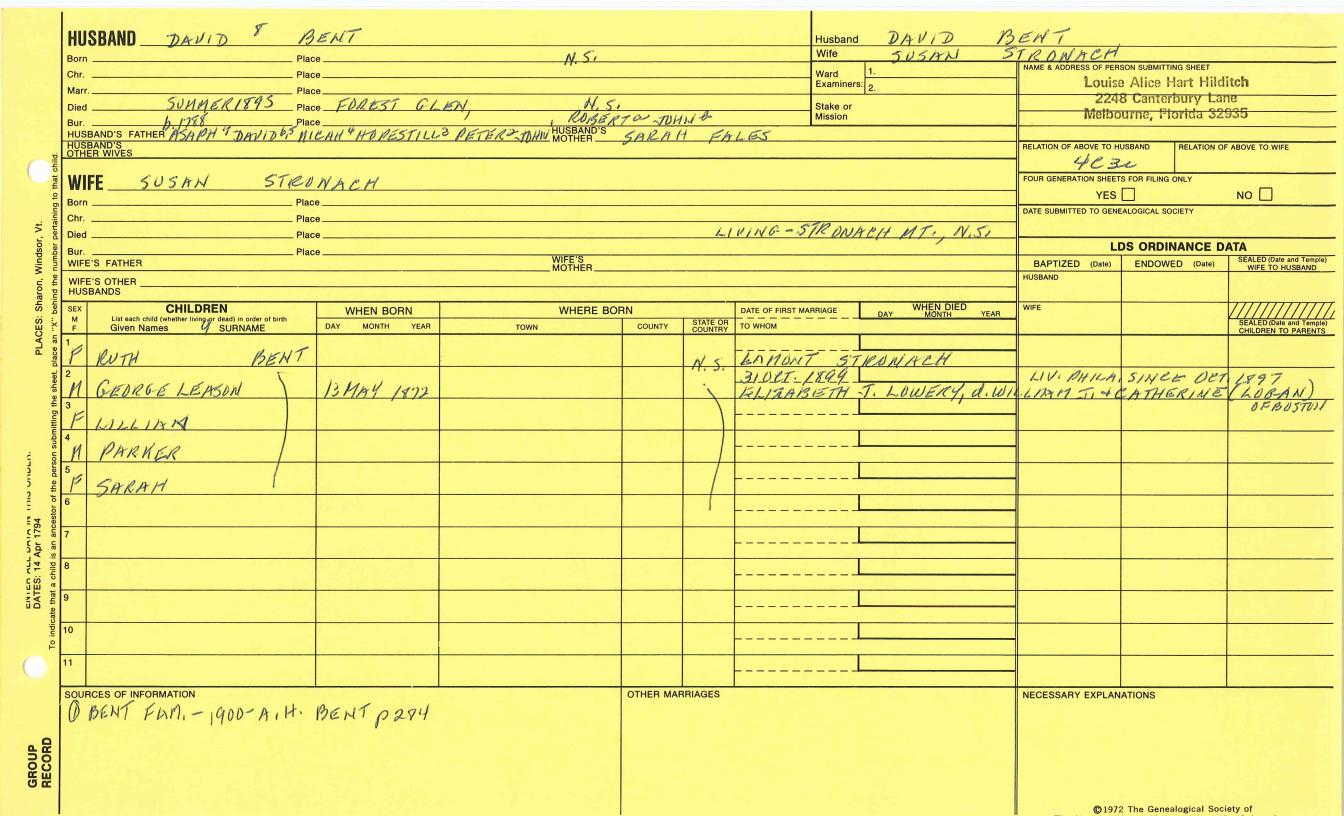 HUSBAND DAVID 8 BENT
Born Place N.S.
Chr. Place
Marr. Place
Died SUMMER 1895 Place FOREST GLEN, N.S.
Bur. Place
b. 1788 , ROBERT JOHN
HUSBAND'S FATHER ASAPH 7 DAVID 6,5 MICAH 4 HOPESTILL 3 PETER 2 JOHN HUSBAND'S MOTHER SARAH FALES
HUSBAND'S OTHER WIVES
WIFE SUSAN STRONACH
Born Place
Chr. Place
Died Place LIVING - STRONACH MT., N.S.
Bur. Place
WIFE'S FATHER WIFE'S MOTHER
WIFE'S OTHER HUSBANDS
Husband DAVID BENT
Wife SUSAN STRONACH
Ward Examiners: 1.
2.
Stake or Mission
NAME & ADDRESS OF PERSON SUBMITTING SHEET
Louise Alice Hart Hilditch
2248 Canterbury Lane
Melbourne, Florida 32935
RELATION OF ABOVE TO HUSBAND RELATION OF ABOVE TO WIFE
4C3R
FOUR GENERATION SHEETS FOR FILING ONLY
YES NO
DATE SUBMITTED TO GENEALOGICAL SOCIETY
LDS ORDINANCE DATA
BAPTIZED (Date) ENDOWED (Date) SEALED (Date and Temple) WIFE TO HUSBAND
HUSBAND
WIFE
SEALED (Date and Temple) CHILDREN TO PARENTS
SEX M F
CHILDREN
List each child (whether living or dead) in order of birth
Given Names 9 SURNAME
WHEN BORN
DAY MONTH YEAR
WHERE BORN
TOWN COUNTY STATE OR COUNTRY
DATE OF FIRST MARRIAGE
TO WHOM
WHEN DIED
DAY MONTH YEAR
1 F RUTH BENT N.S. LAMONT STRONACH
2 M GEORGE LEASON 13 MAY 1872 31 OCT. 1899 LIV. PHILA. SINCE OCT. 1897
ELIZABETH T. LOWERY, d. WILLIAM J. & CATHERINE (LOGAN)
OF BOSTON
3 F LILLIAN
4 M PARKER
5 F SARAH
6
7
8
9
10
11
SOURCES OF INFORMATION
① BENT FAM. - 1900 - A.H. BENT p 284
OTHER MARRIAGES
NECESSARY EXPLANATIONS
©1972 The Genealogical Society of
PLACES: Sharon, Windsor, Vt.
To indicate that a child is an ancestor of the person submitting the sheet, place an "X" behind the number pertaining to that child.
ENTER ALL DATA IN THIS ORDER:
DATES: 14 Apr 1794
GROUP RECORD